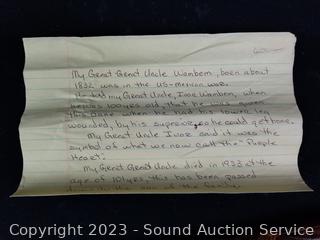 My Great Great Uncle Wambem, born about
1832 was in the US-mexican war.
He told my Great Uncle, Ivor Wambem, when
he was 100 yrs old, that he was given
this cane when he had his lower leg
wounded, by his superior, so he could get home.
My Great Uncle Ivor said it was the
symbol of what we now call the "Purple
Heart".
My Great Great Uncle died in 1933 at the
age of 101 yrs this has been passed
Copyright 2023 - Sound Auction Service